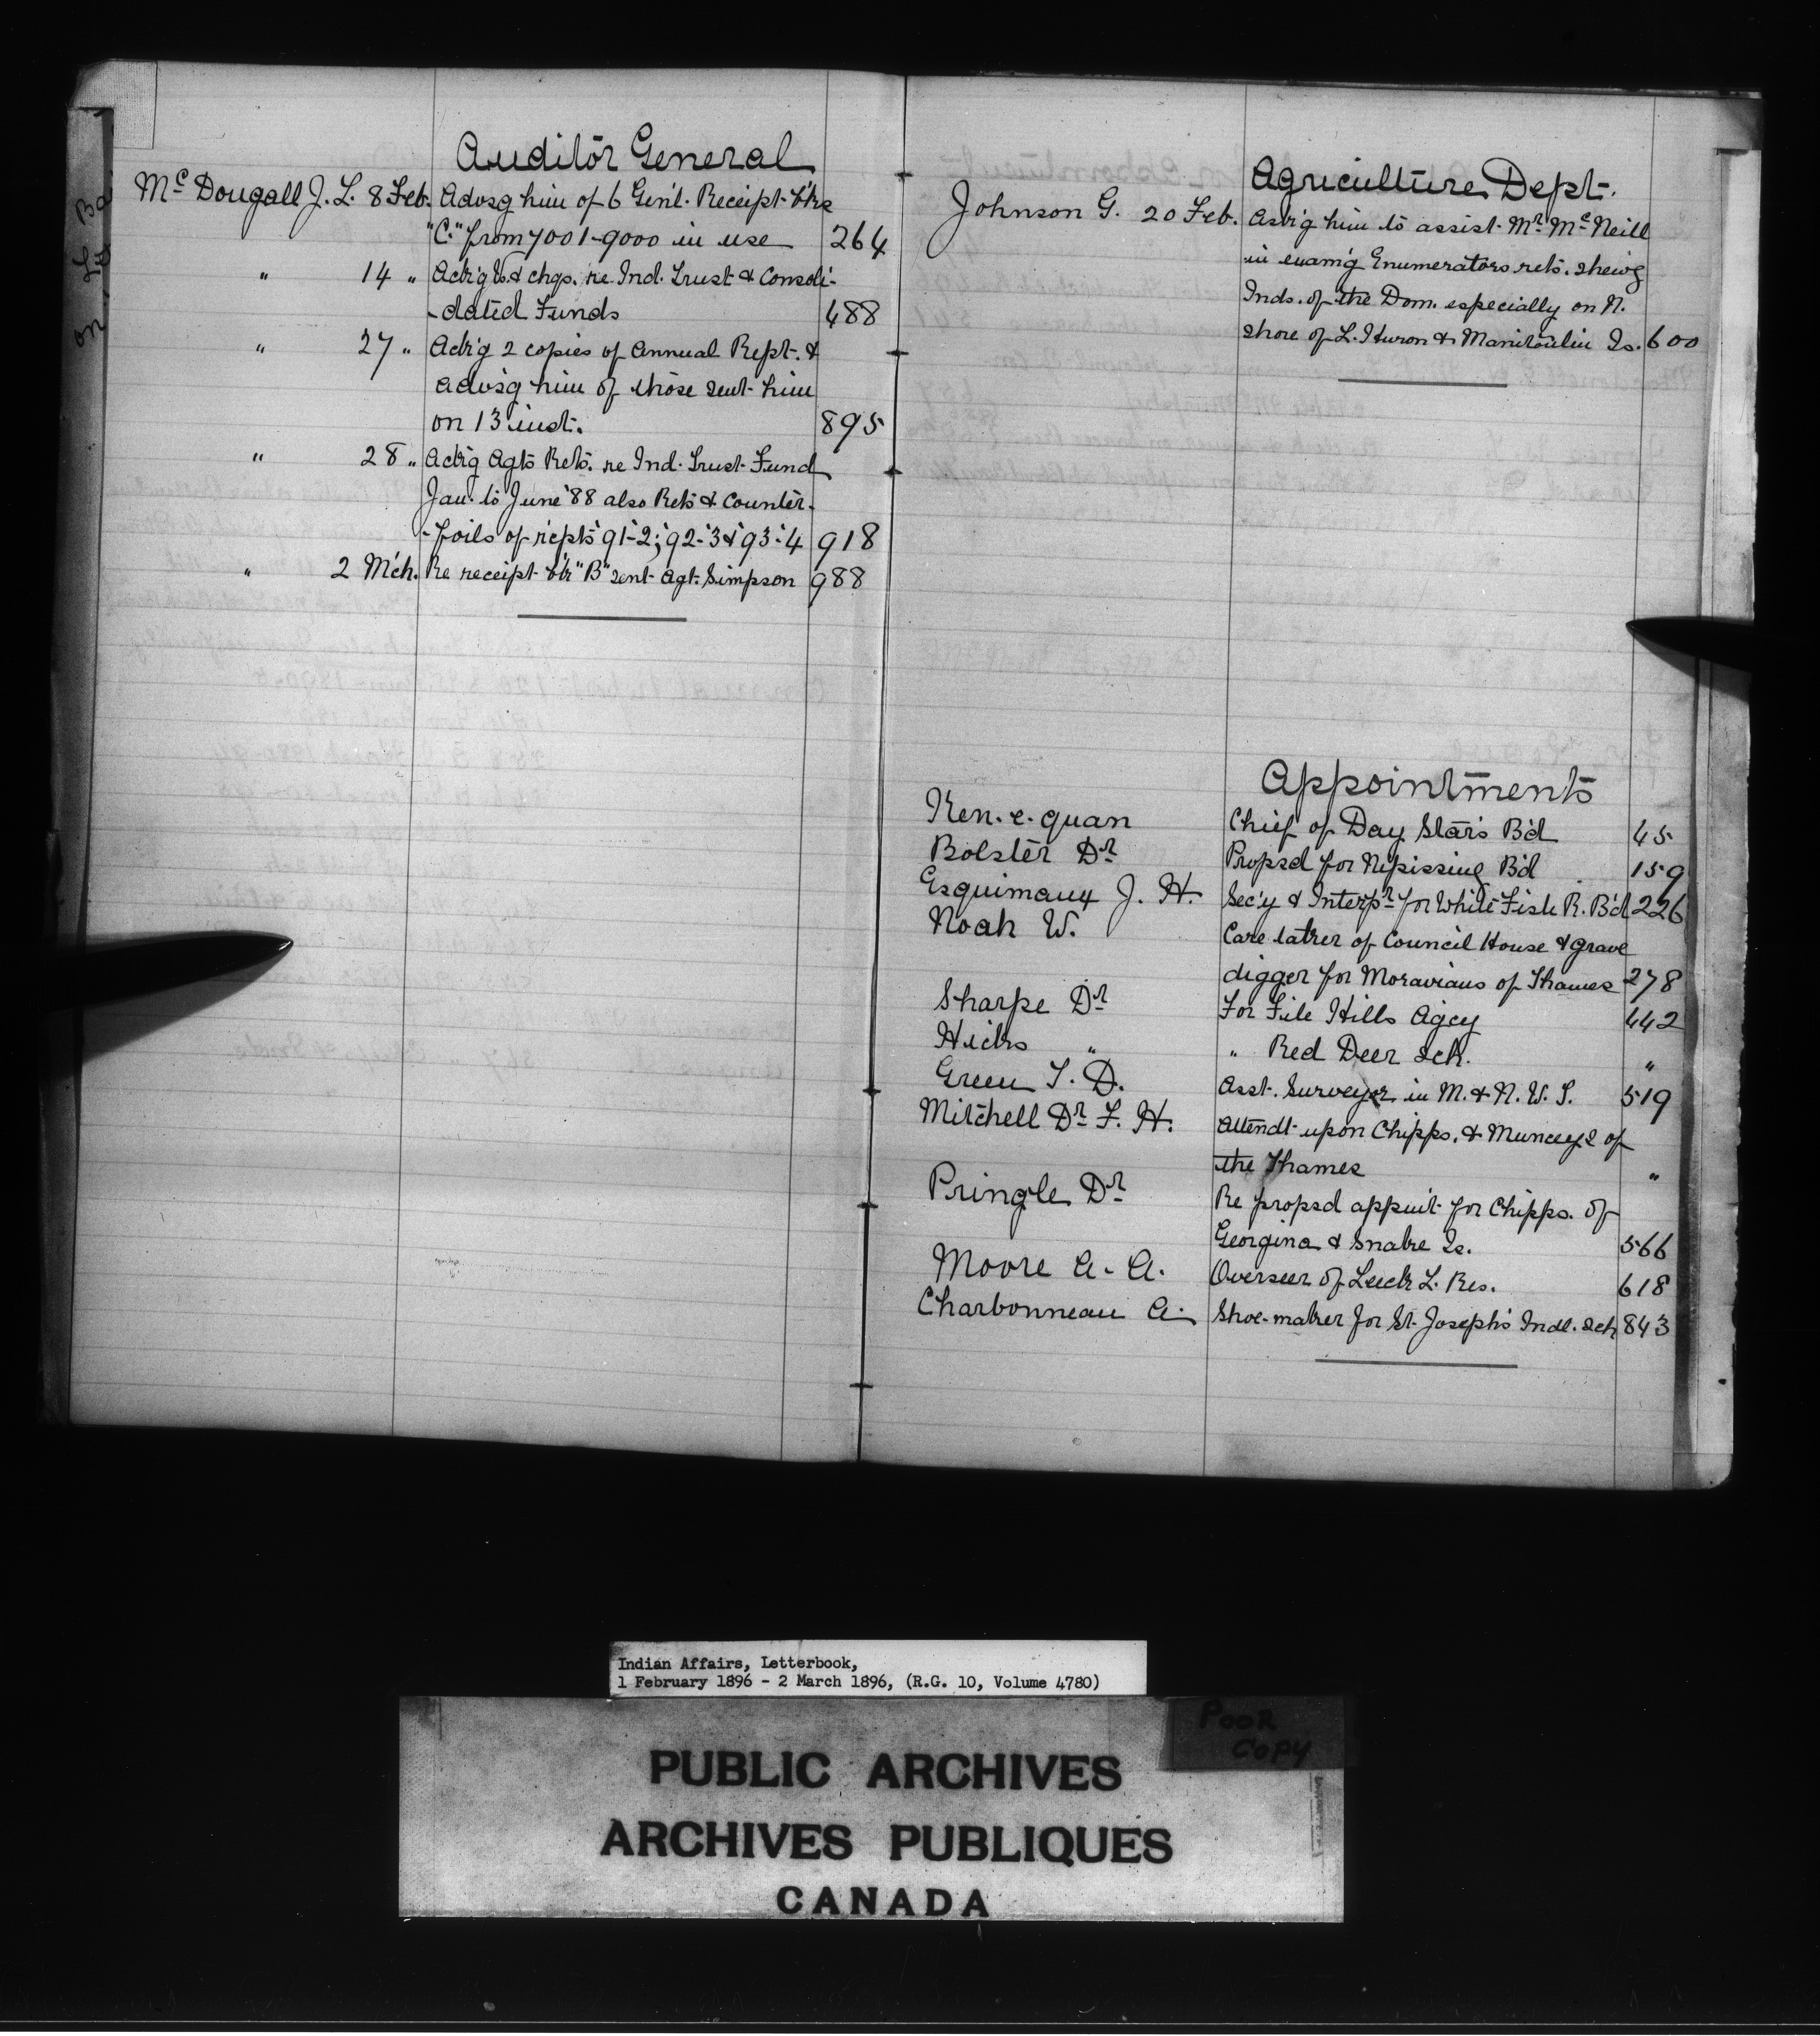 Auditor General
McDougall J. L. 8 Feb. Advsg him of 6 Genl. Receipt b'ks
"C." from 7001-9000 in use 264
" 14 " Ack'g & chqs. re Ind. Trust & Consoli-
-dated Funds 488
" 27 " Ack'g 2 copies of Annual Rept. &
advs'g him of those sent him
on 13 inst. 895
" 28 " Ack'g Agts Rets. re Ind. Trust Fund
Jan. to June '88 also Rets & Counter-
-foils of rcpts '91-2; '92-'3 & '93-'4 918
" 2 Mch. Re receipt b'k "B" sent Agt. Simpson 988
Agriculture Dept.
Johnson G. 20 Feb. Ask'g him to assist Mr. McNeill
in exam'g Enumerators rets. shewg
Inds. of the Dom. especially on N.
shore of L. Huron & Manitoulin Is. 600
Appointments
Ken.e.quan Chief of Day Star's B'd 45
Bolster Dr. Propsd for Nipissing B'd 159
Esquimaux J. H. Sec'y & Interpr. for White Fish R. B'd 226
Noah W. Care taker of Council House & grave
digger for Moravians of Thames 278
Sharpe Dr. For File Hills Agcy 442
Hicks " " Red Deer sch. "
Green T. D. Asst. Surveyor in M. & N. W. T. 519
Mitchell Dr. F. H. Attendt upon Chipps. & Munceys of
the Thames "
Pringle Dr. Re propsd appmt for Chipps. of
Georgina & Snake Is. 566
Moore A. A. Overseer of Leech L. Res. 618
Charbonneau A. Shoe-maker for St. Joseph's Indl. sch 843
Indian Affairs, Letterbook,
1 February 1896 - 2 March 1896, (R.G. 10, Volume 4780)
POOR
COPY
PUBLIC ARCHIVES
ARCHIVES PUBLIQUES
CANADA